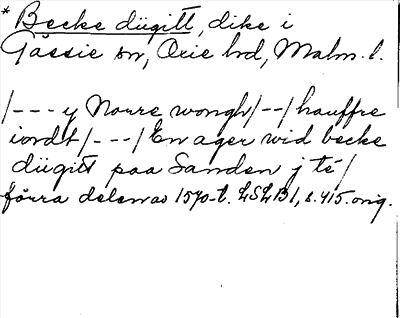 * Becke diigitt, dike i
Gässie sn, Oxie hd, Malm. l.
/--- y Norre wongh/--/hauffre
iordt/---/ En ager wid becke
diigitt paa Sanden j té/
förra delen av 1570-t. LSLB1, s. 415. orig.